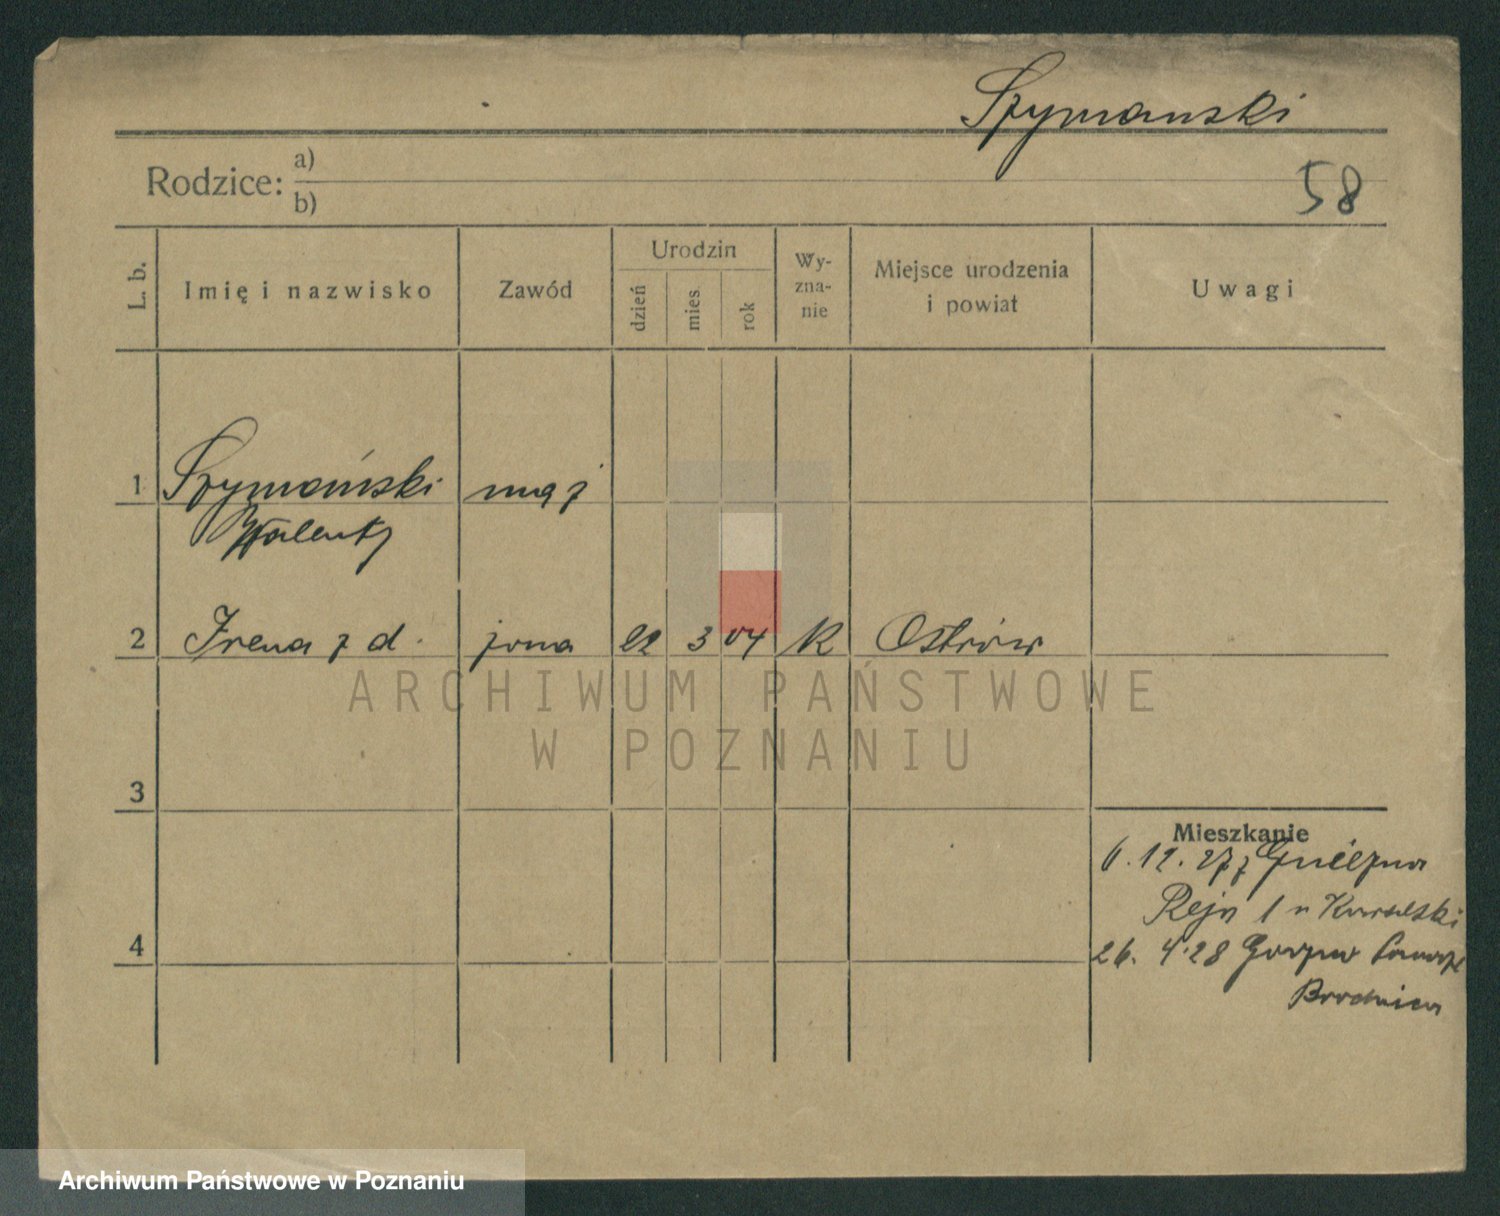 Szymanski
58
Rodzice: a)
b)
L. b. Imię i nazwisko Zawód Urodzin dzień mies. rok Wy-zna-nie Miejsce urodzenia i powiat Uwagi
1 Szymański mąż
Walenty
2 Irena z d. żona 22 3 04 K Ostrów
ARCHIWUM PAŃSTWOWE
W POZNANIU
3
Mieszkanie
6.12.27 z Gniezna
Reja 1
4
26. 4.28
Brodnica
Archiwum Państwowe w Poznaniu